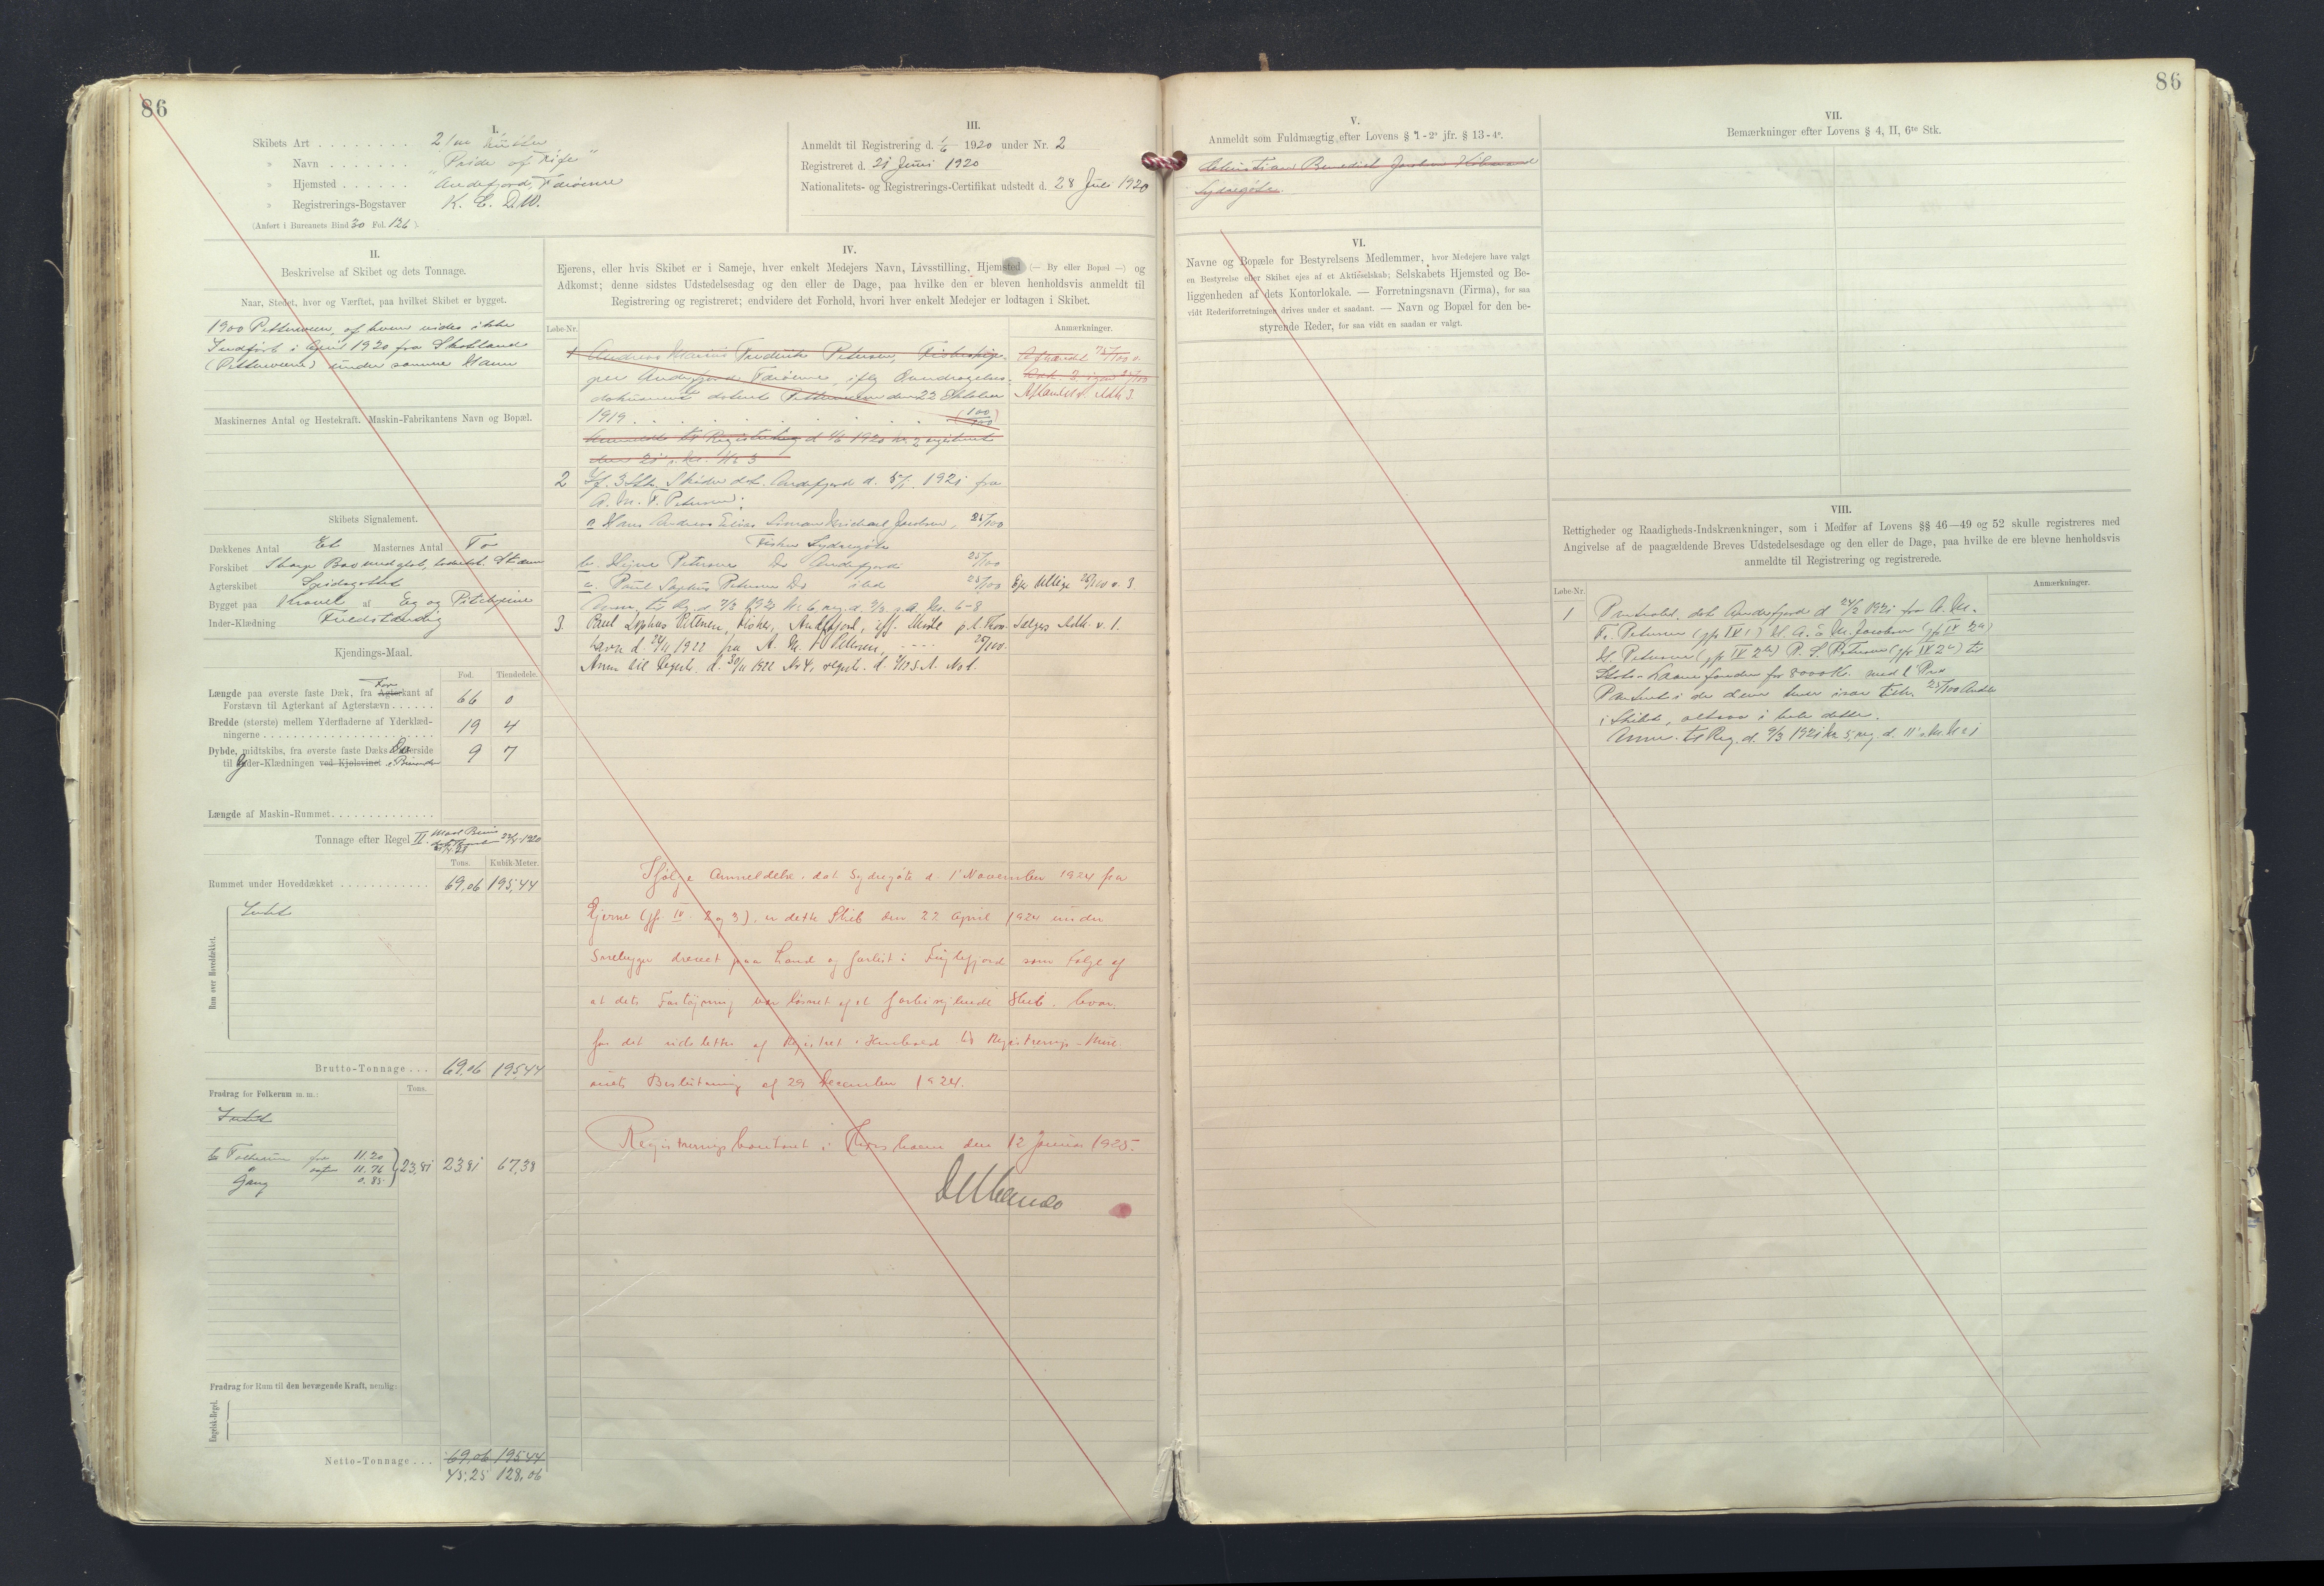 86
86
I.
Skibets Art . . . . . . . . 2/m Kutter
» Navn . . . . . . . . "Pride of Fife"
» Hjemsted . . . . . . Andefjord, Færøerne
» Registrerings-Bogstaver K. C. D. W.
(Anført i Bureauets Bind 30 Fol. 126)
III.
Anmeldt til Registrering d. 1/6 1920 under Nr. 2
Registreret d. 21 Juni 1920
Nationalitets- og Registrerings-Certifikat udstedt d. 28 Juli 1920
II.
Beskrivelse af Skibet og dets Tonnage.
Naar, Stedet, hvor og Værftet, paa hvilket Skibet er bygget.
1900 Pittenween, af hvem vides ikke
Indført i April 1920 fra Skotland
(Pittenween) under samme Navn
Maskinernes Antal og Hestekraft. Maskin-Fabrikantens Navn og Bopæl.
Skibets Signalement.
Dækkenes Antal Et Masternes Antal To
Forskibet Skarp Bov
Agterskibet Spidsgattet
Bygget paa Kravel af Eg og Pitchpine
Inder-Klædning Fuldstændig
Kjendings-Maal.
Fod. Tiendedele.
Længde paa øverste faste Dæk, fra Agterkant af For
Forstævn til Agterkant af Agterstævn . . . . . . 66 0
Bredde (største) mellem Yderfladerne af Yderklæd-
ningerne . . . . . . 19 4
Dybde, midtskibs, fra øverste faste Dæks Overside
til Yder-Klædningen ved Kjølsvinet 9 7
Længde af Maskin-Rummet . . . . . .
Tonnage efter Regel II. 1920
Tons. Kubik-Meter.
Rummet under Hoveddækket . . . . . . 69,06 195,44
Rum over Hoveddækket.
Intet
Brutto-Tonnage . . . 69,06 195,44
Tons.
Fradrag for Folkerum m. m.:
Intet
Folkerum for 11.20
agter 11.76
Gang 0.85
23,81 23,81 67,38
Fradrag for Rum til den bevægende Kraft, nemlig:
Engelsk-Regel.
Netto-Tonnage . . . 69,06 195,44
45,25 128,06
IV.
Ejerens, eller hvis Skibet er i Sameje, hver enkelt Medejers Navn, Livsstilling, Hjemsted (— By eller Bopæl —) og
Adkomst; denne sidstes Udstedelsesdag og den eller de Dage, paa hvilke den er bleven henholdsvis anmeldt til
Registrering og registreret; endvidere det Forhold, hvori hver enkelt Medejer er lodtagen i Skibet.
Løbe-Nr. Anmærkninger.
1 Andreas Marius Frederik Petersen, Fiskeskip-
per Andefjord Færøerne, iflg Inddragelses-
dokument dateret Pittenween den 22 Oktober
1919 . . . . . (100/100)
Anmeldt til Registrering d 1/6 1920 Nr 2 registreret
den 21 s. M. Nr 3
Afhændet 75/100 v.
Afhændet v. Adk 3.
2 If. 3 Stk. Skøder dat. Andefjord d. 5/1 1921 fra
A. M. F. Petersen:
a Hans Andreas Elias Simon Michael Jacobsen, 25/100
Fisker Sydregöte
b. Hejne Petersen Do Andefjord 25/100
c. Paul Sophus Petersen Do ibid 25/100 Ejer tillige 25/100 v. 3.
Anm. til Reg. d. 7/3 1921 Nr 6, reg. d. 9/3 s. A. Nr. 6-8
3. Paul Sophus Petersen, Fisker, Andefjord, iflg. Skøde p. t. Thors- Sælgers Adk. v. 1.
havn d. 24/11 1922 fra A. M. F. Petersen, - - - - 25/100.
Anm til Regist. d. 30/11 1922 Nr 4, regist. d. 4/12 s. A. No 1.
Ifølge Anmeldelse, dat Sydregöte d. 1' November 1924 fra
Ejerne (jfr. IV. 2 og 3), er dette Skib den 22 April 1924 under
Snebyger drevet paa Land og forlist i Fuglefjord som Følge af
at dets Fortøjning var løsnet af et forbisejlende Skib, hvor-
for det udslettes af Registret i Henhold til Registrerings-Mini-
striets Beslutning af 29 December 1924.
Registreringskontoret i Thorshavn den 12 Januar 1925.
V.
Anmeldt som Fuldmægtig efter Lovens § 1-2° jfr. § 13-4°.
Christian Benedict Jacobsen Købmand
Sydregöte.
VI.
Navne og Bopæle for Bestyrelsens Medlemmer, hvor Medejere have valgt
en Bestyrelse eller Skibet ejes af et Aktieselskab; Selskabets Hjemsted og Be-
liggenheden af dets Kontorlokale. — Forretningsnavn (Firma), for saa
vidt Rederiforretningen drives under et saadant. — Navn og Bopæl for den be-
styrende Reder, for saa vidt en saadan er valgt.
VII.
Bemærkninger efter Lovens § 4, II, 6te Stk.
VIII.
Rettigheder og Raadigheds-Indskrænkninger, som i Medfør af Lovens §§ 46—49 og 52 skulle registreres med
Angivelse af de paagældende Breves Udstedelsesdage og den eller de Dage, paa hvilke de ere blevne henholdsvis
anmeldte til Registrering og registrerede.
Løbe-Nr. Anmærkninger.
1 Pantobl. dat Andefjord d 24/2 1921 fra A. M.
Fr. Petersen (jfr IV 1) H. A. E. S. M. Jacobsen (jfr IV 2a)
H. Petersen (jfr IV 2b) P. S. Petersen (jfr IV 2c) til
Stats-Laanefonden for 8000 Kr. med 1' Prio
Panteret i de dem hver især tilh. 25/100 Andele
i Skibet, altsaa i hele dette.
Anm. til Reg. d. 9/3 1921 Nr 5, reg. d. 11' s. M. Nr 1